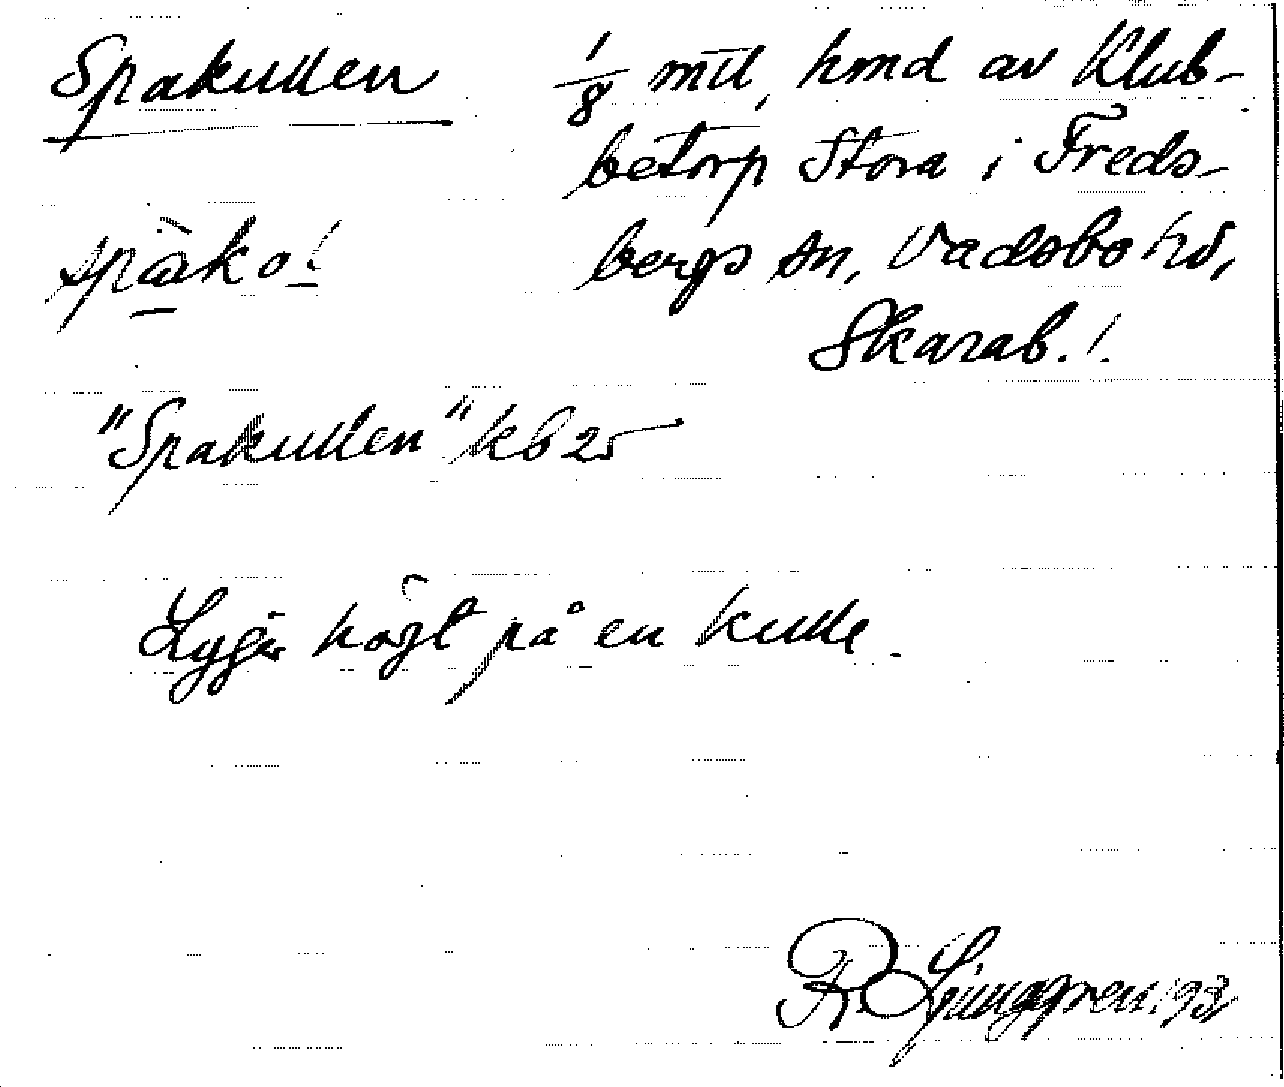 Spakullen
1/8 mil, hmd av Klub-
betorp Stora i Freds-
bergs sn, Vadsbo hd,
Skarab. l.
"Spakullen" kb 25
Ligger högt på en kulle.
R Ljunggren 193